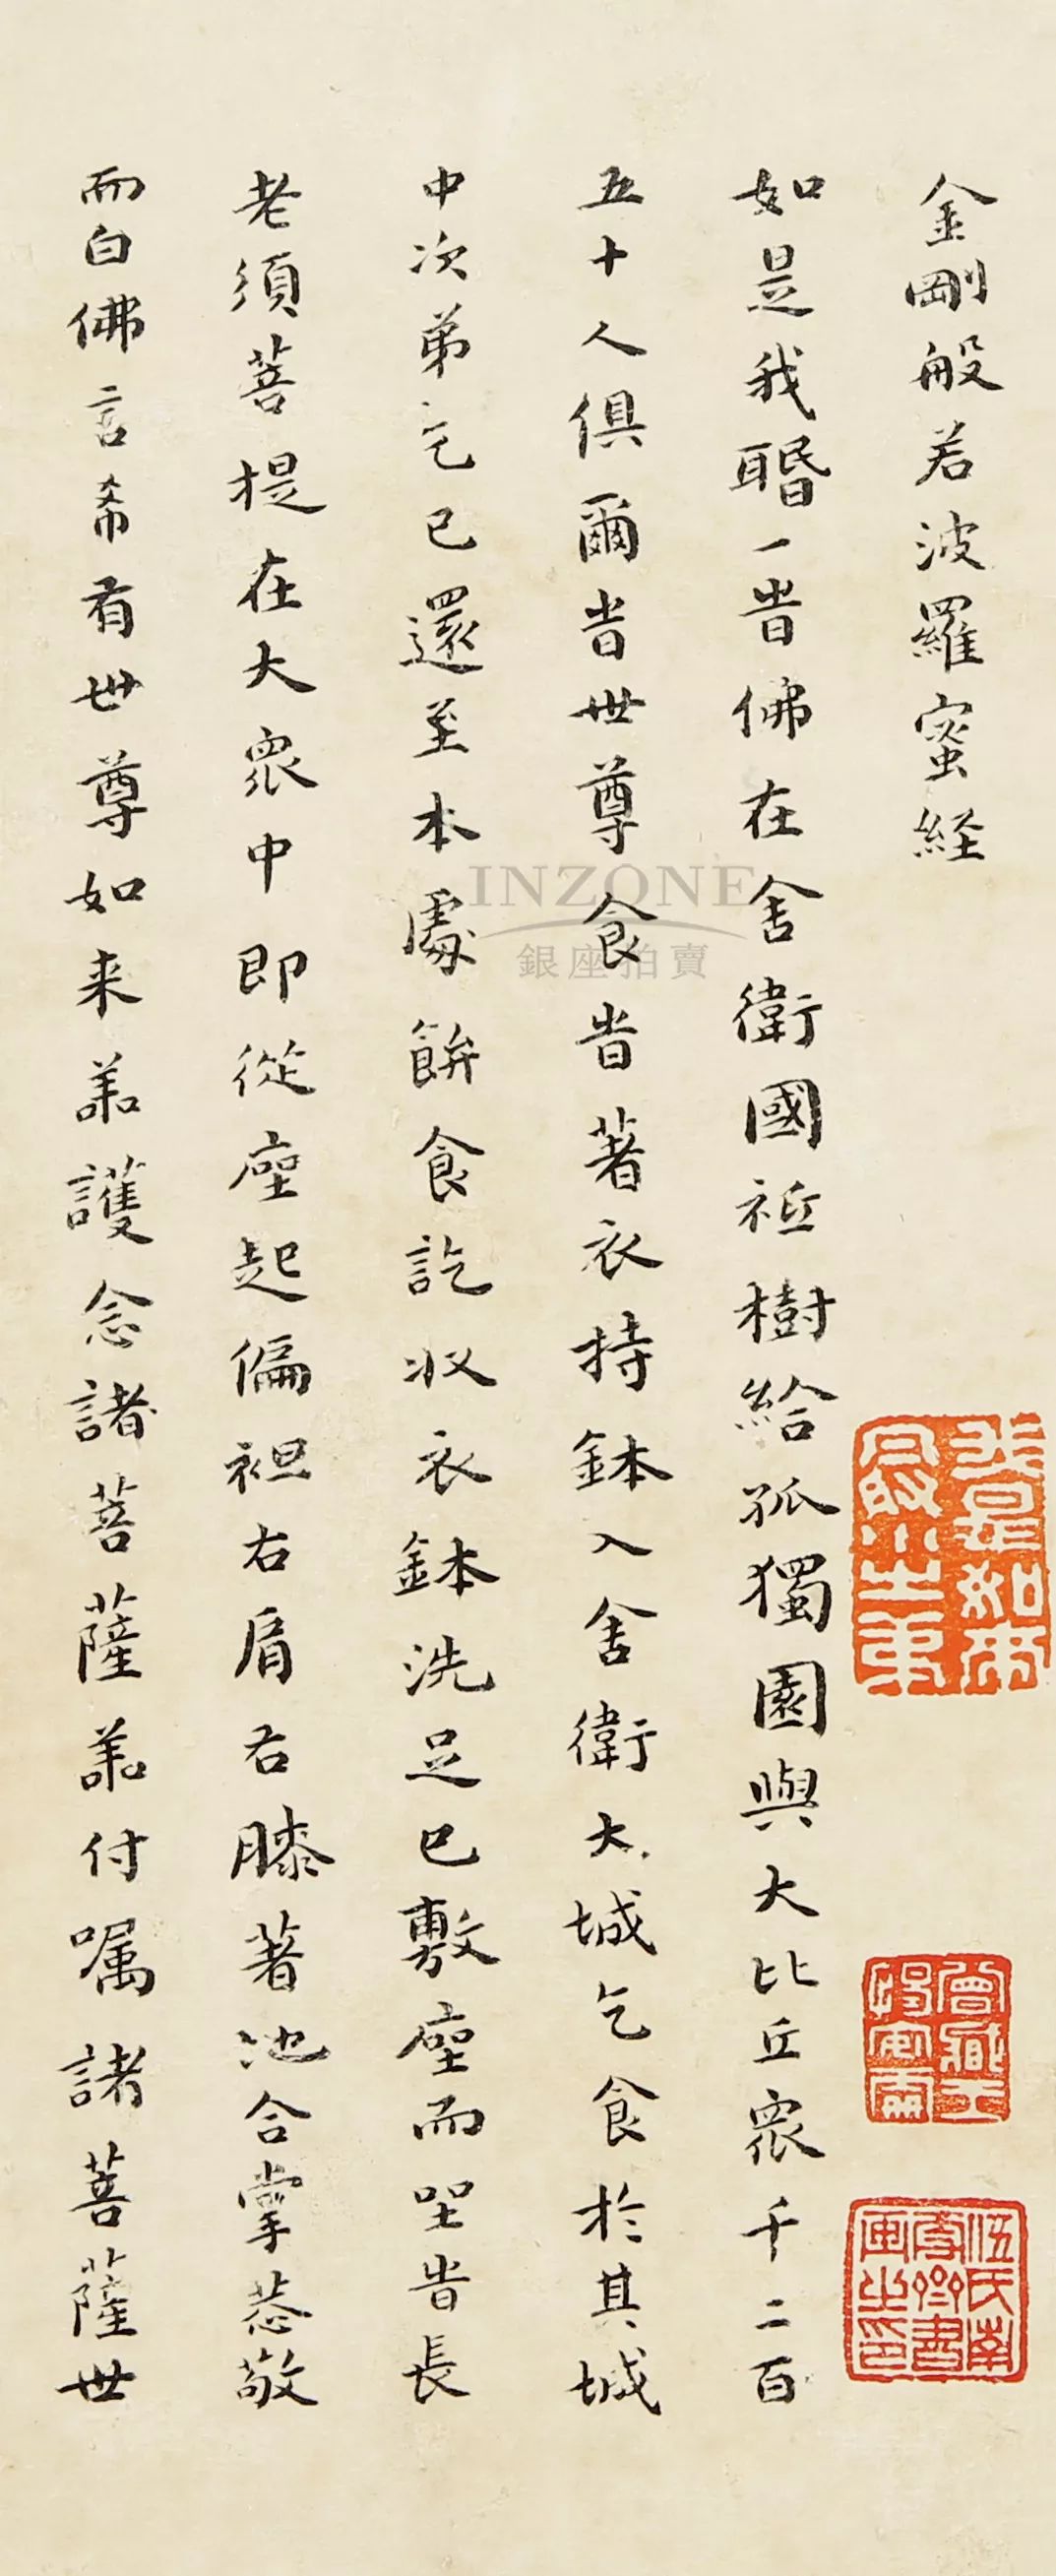 金剛般若波羅蜜経
如是我聞一旹佛在舍衛國祇樹給孤獨園與大比丘眾千二百
五十人俱爾旹世尊食旹著衣持鉢入舍衛大城乞食於其城
中次第乞已還至本處飯食訖收衣鉢洗足已敷座而坐旹長
老須菩提在大眾中即從座起偏袒右肩右膝著地合掌恭敬
而白佛言希有世尊如来善護念諸菩薩善付囑諸菩薩世
INZONE
銀座拍賣